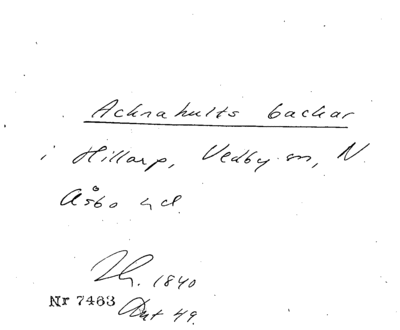 Acknahults backar
i Hillarp, Vedby sn, N.
Åsbo hd.
1840
Nr 7463 Akt 49.